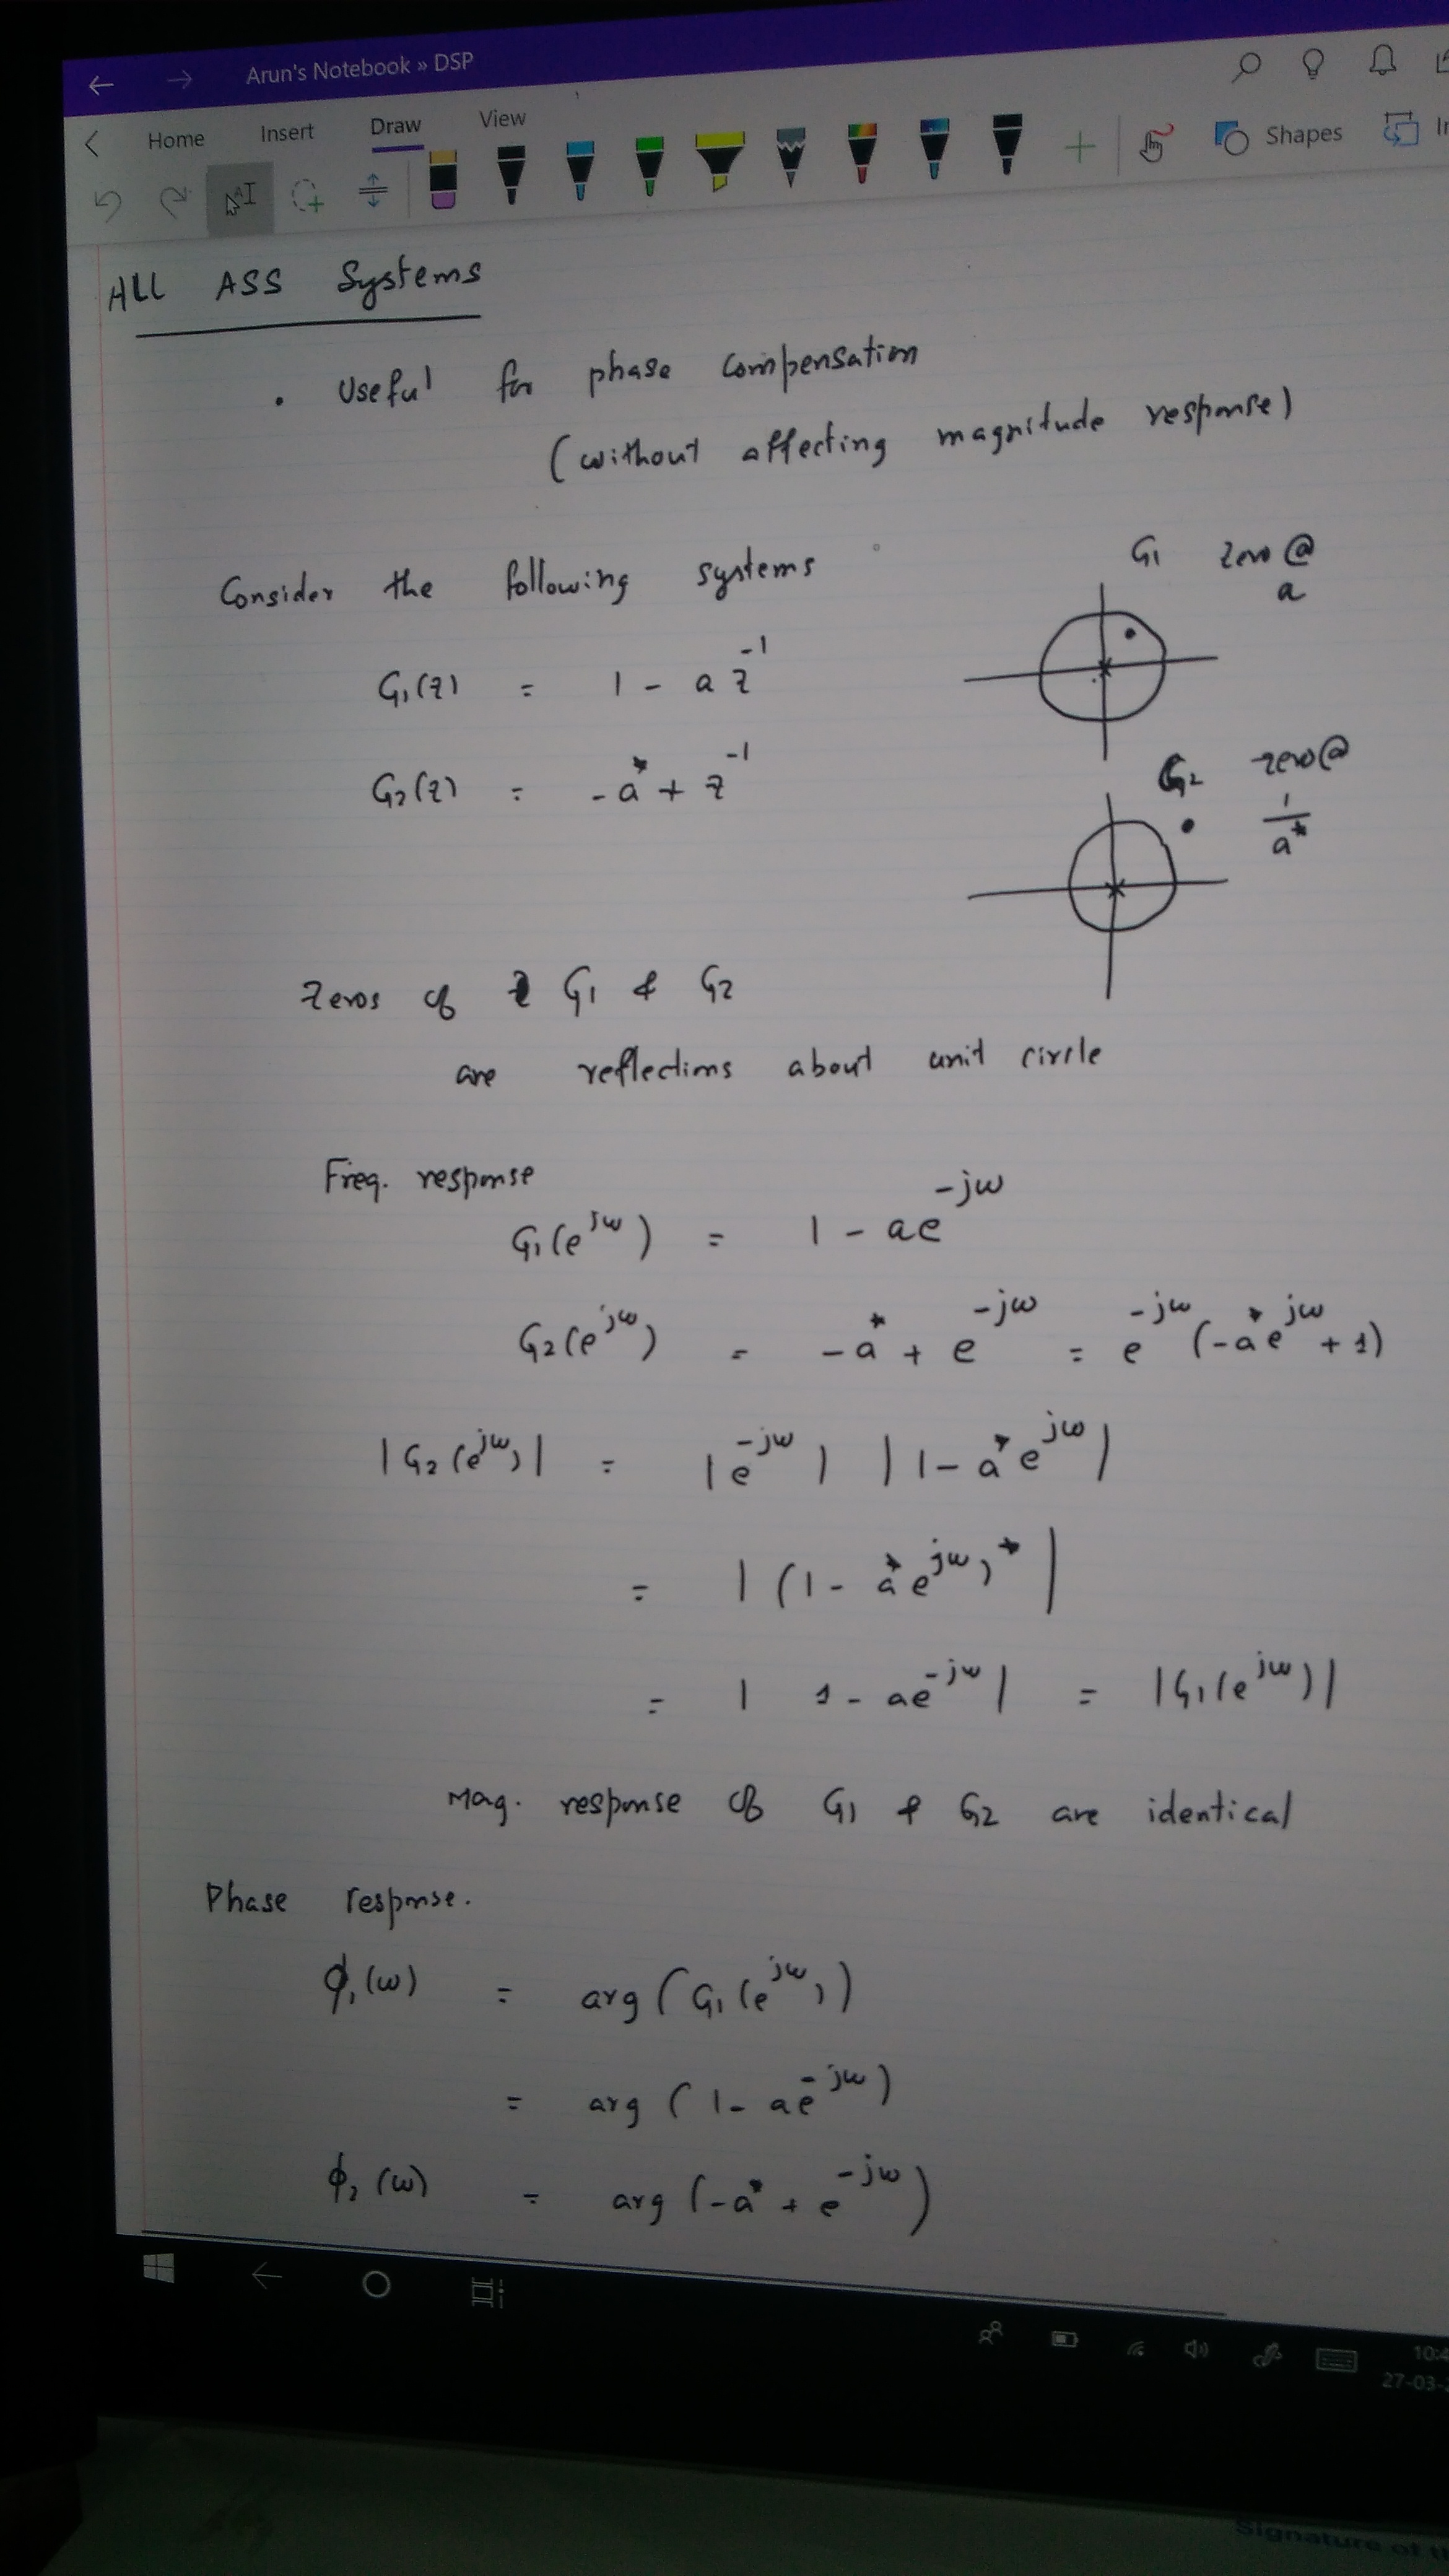 Arun's Notebook » DSP
Home Insert Draw View
Shapes
ALL ASS Systems
. Useful for phase compensation
(without affecting magnitude response)
Consider the following systems
G1 zero @ a
G1(z) = 1 - a z^-1
G2(z) = -a* + z^-1
G2 zero @ 1/a*
Zeros of G1 & G2
are reflections about unit circle
Freq. response
G1(e^jω) = 1 - ae^-jω
G2(e^jω) = -a* + e^-jω = e^-jω (-a*e^jω + 1)
|G2(e^jω)| = |e^-jω| |1 - a*e^jω|
= |(1 - a*e^jω)*|
= |1 - ae^-jω| = |G1(e^jω)|
Mag. response of G1 & G2 are identical
Phase response.
ϕ1(ω) = arg(G1(e^jω))
= arg(1 - ae^-jω)
ϕ2(ω) = arg(-a* + e^-jω)
Signature of